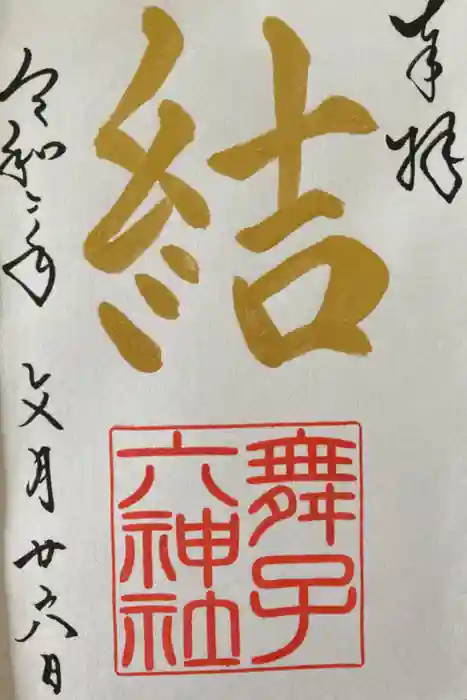 奉拝
結
舞子
六神社
令和二年
文月廿六日